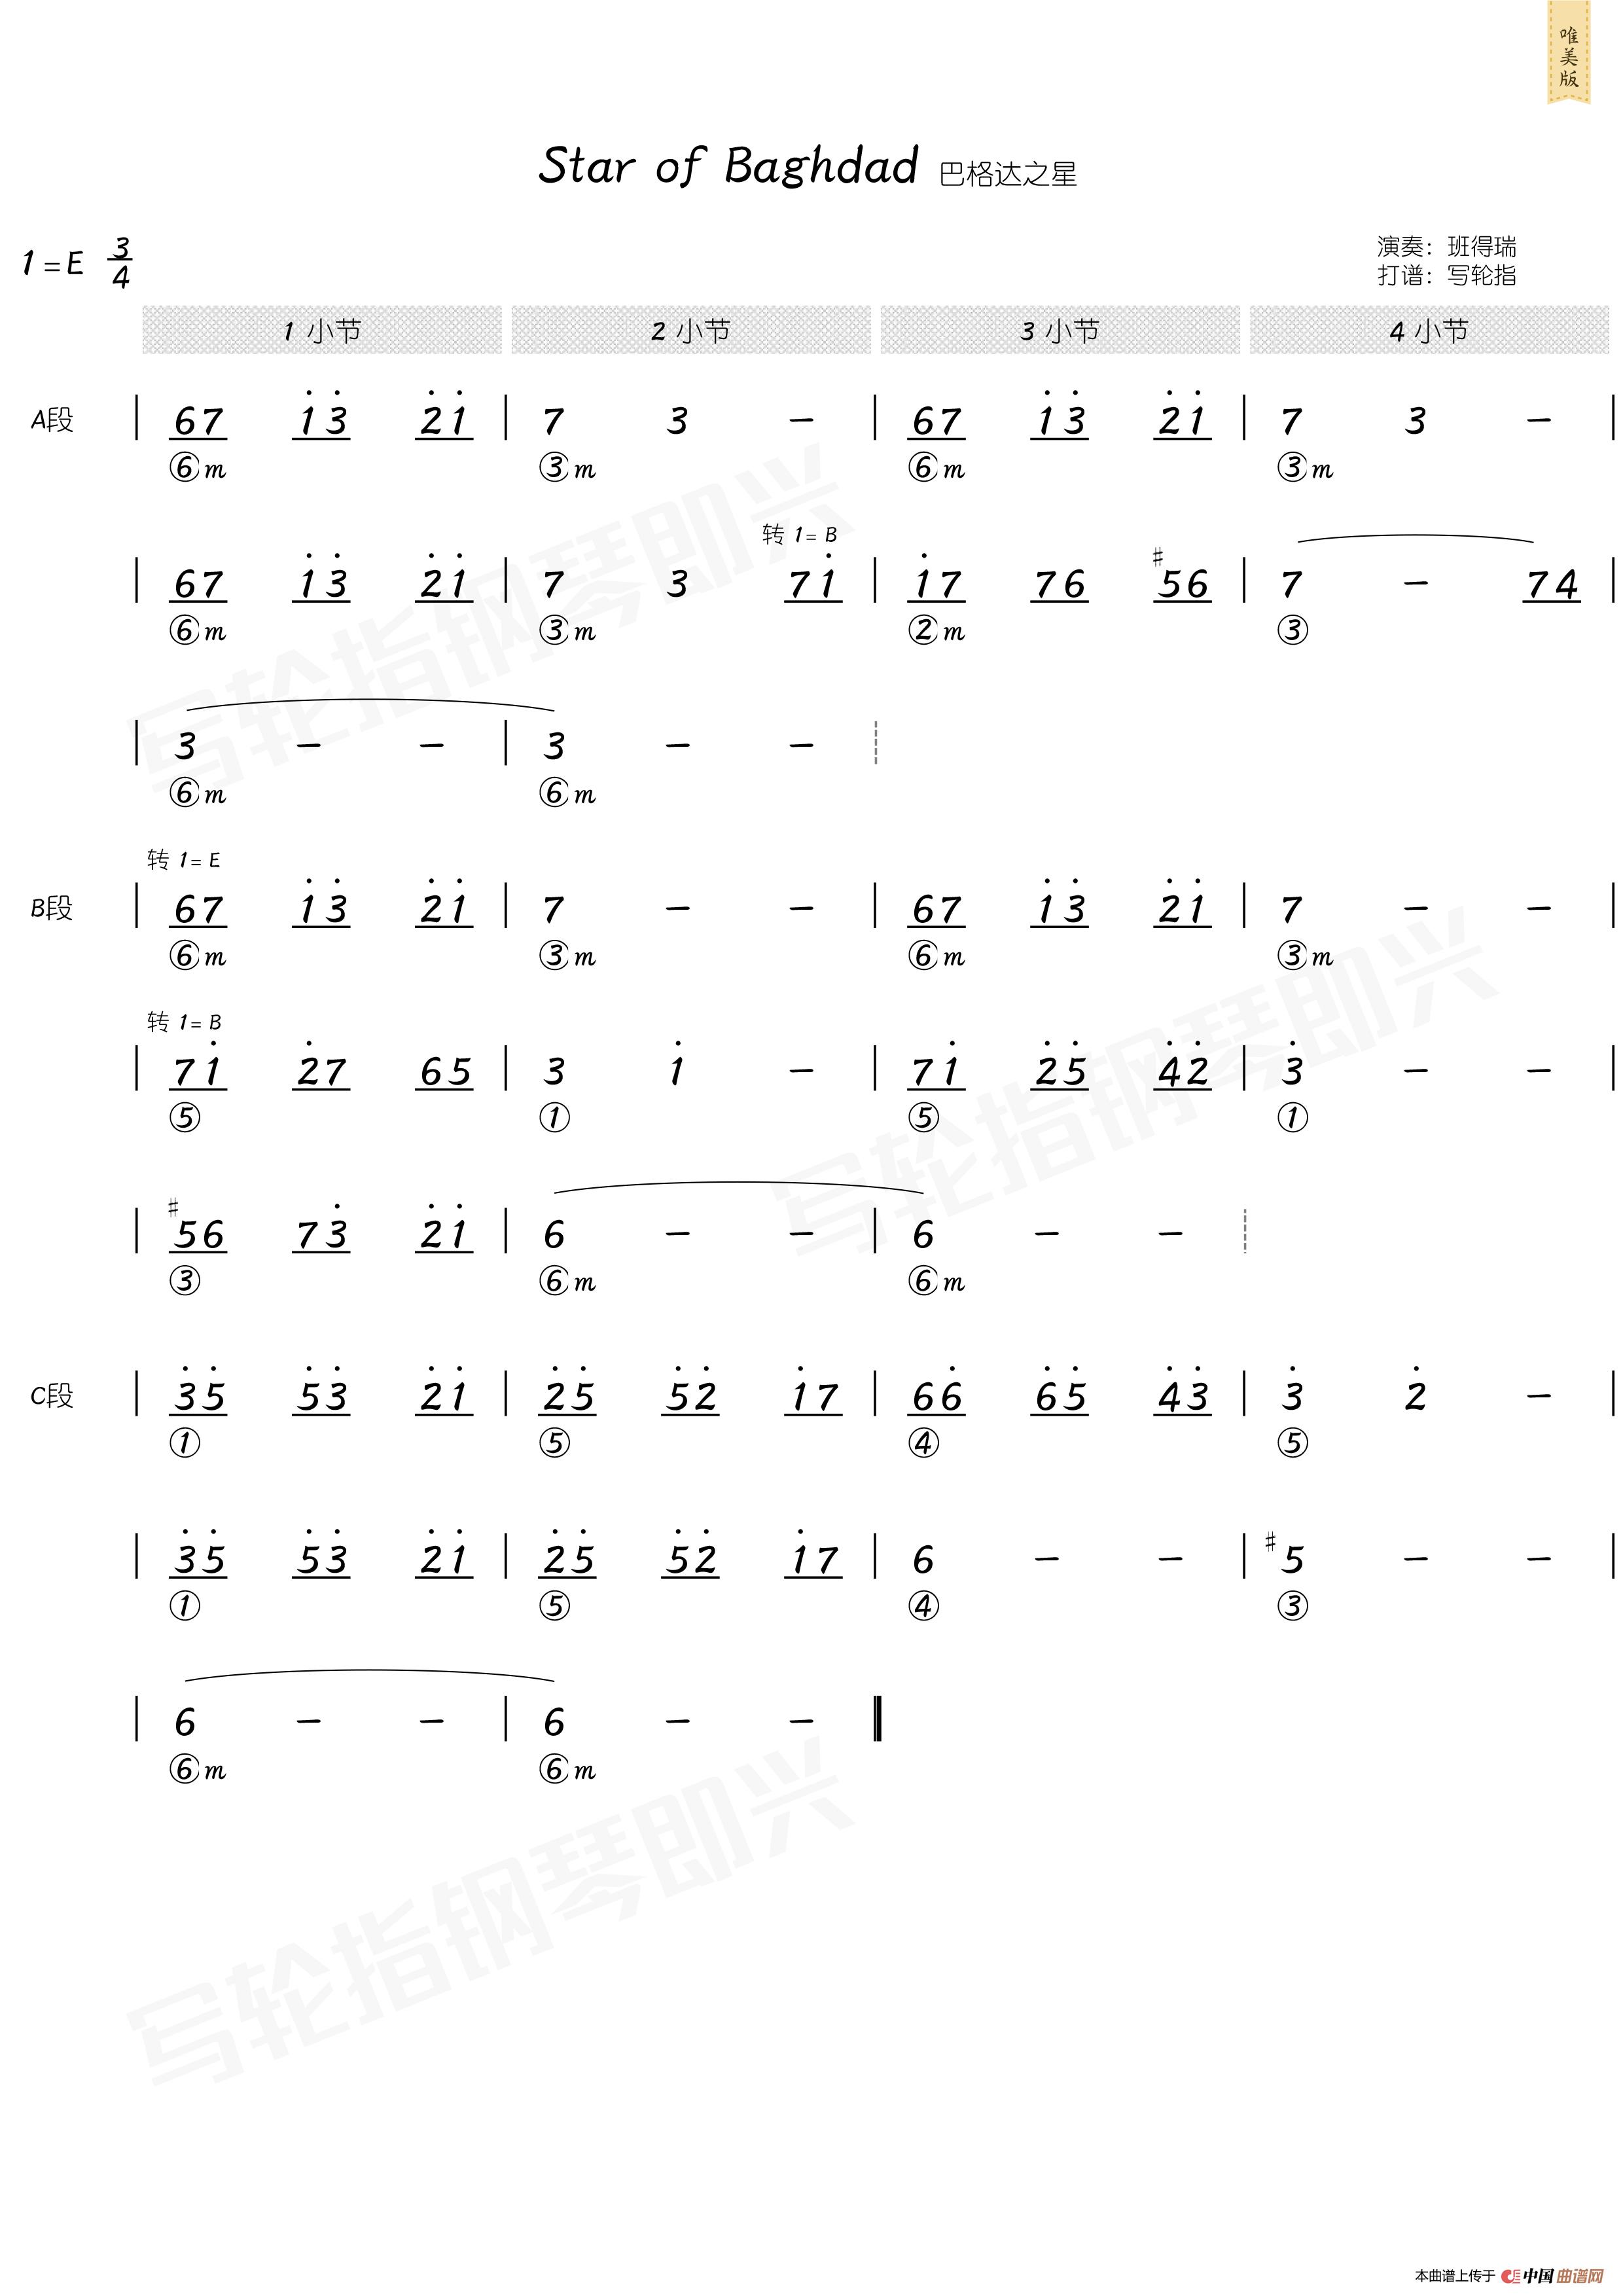 唯美版
Star of Baghdad 巴格达之星
1=E 3/4
演奏：班得瑞
打谱：写轮指
1 小节 2 小节 3 小节 4 小节
A段 | 67 1̇3̇ 2̇1̇ | 7 3 － | 67 1̇3̇ 2̇1̇ | 7 3 － |
⑥m ③m ⑥m ③m
转 1=B
| 67 1̇3̇ 2̇1̇ | 7 3 71̇ | 1̇7 76 #56 | 7 － 74 |
⑥m ③m ②m ③
| 3 － － | 3 － － ¦
⑥m ⑥m
转 1=E
B段 | 67 1̇3̇ 2̇1̇ | 7 － － | 67 1̇3̇ 2̇1̇ | 7 － － |
⑥m ③m ⑥m ③m
转 1=B
| 71̇ 2̇7 65 | 3 1̇ － | 71̇ 2̇5̇ 4̇2̇ | 3̇ － － |
⑤ ① ⑤ ①
| #56 73̇ 2̇1̇ | 6 － － | 6 － － ¦
③ ⑥m ⑥m
C段 | 3̇5̇ 5̇3̇ 2̇1̇ | 2̇5̇ 5̇2̇ 1̇7 | 66̇ 6̇5̇ 4̇3̇ | 3̇ 2̇ － |
① ⑤ ④ ⑤
| 3̇5̇ 5̇3̇ 2̇1̇ | 2̇5̇ 5̇2̇ 1̇7 | 6 － － | #5 － － |
① ⑤ ④ ③
| 6 － － | 6 － － ‖
⑥m ⑥m
写轮指钢琴即兴
写轮指钢琴即兴
写轮指钢琴即兴
本曲谱上传于 中国曲谱网